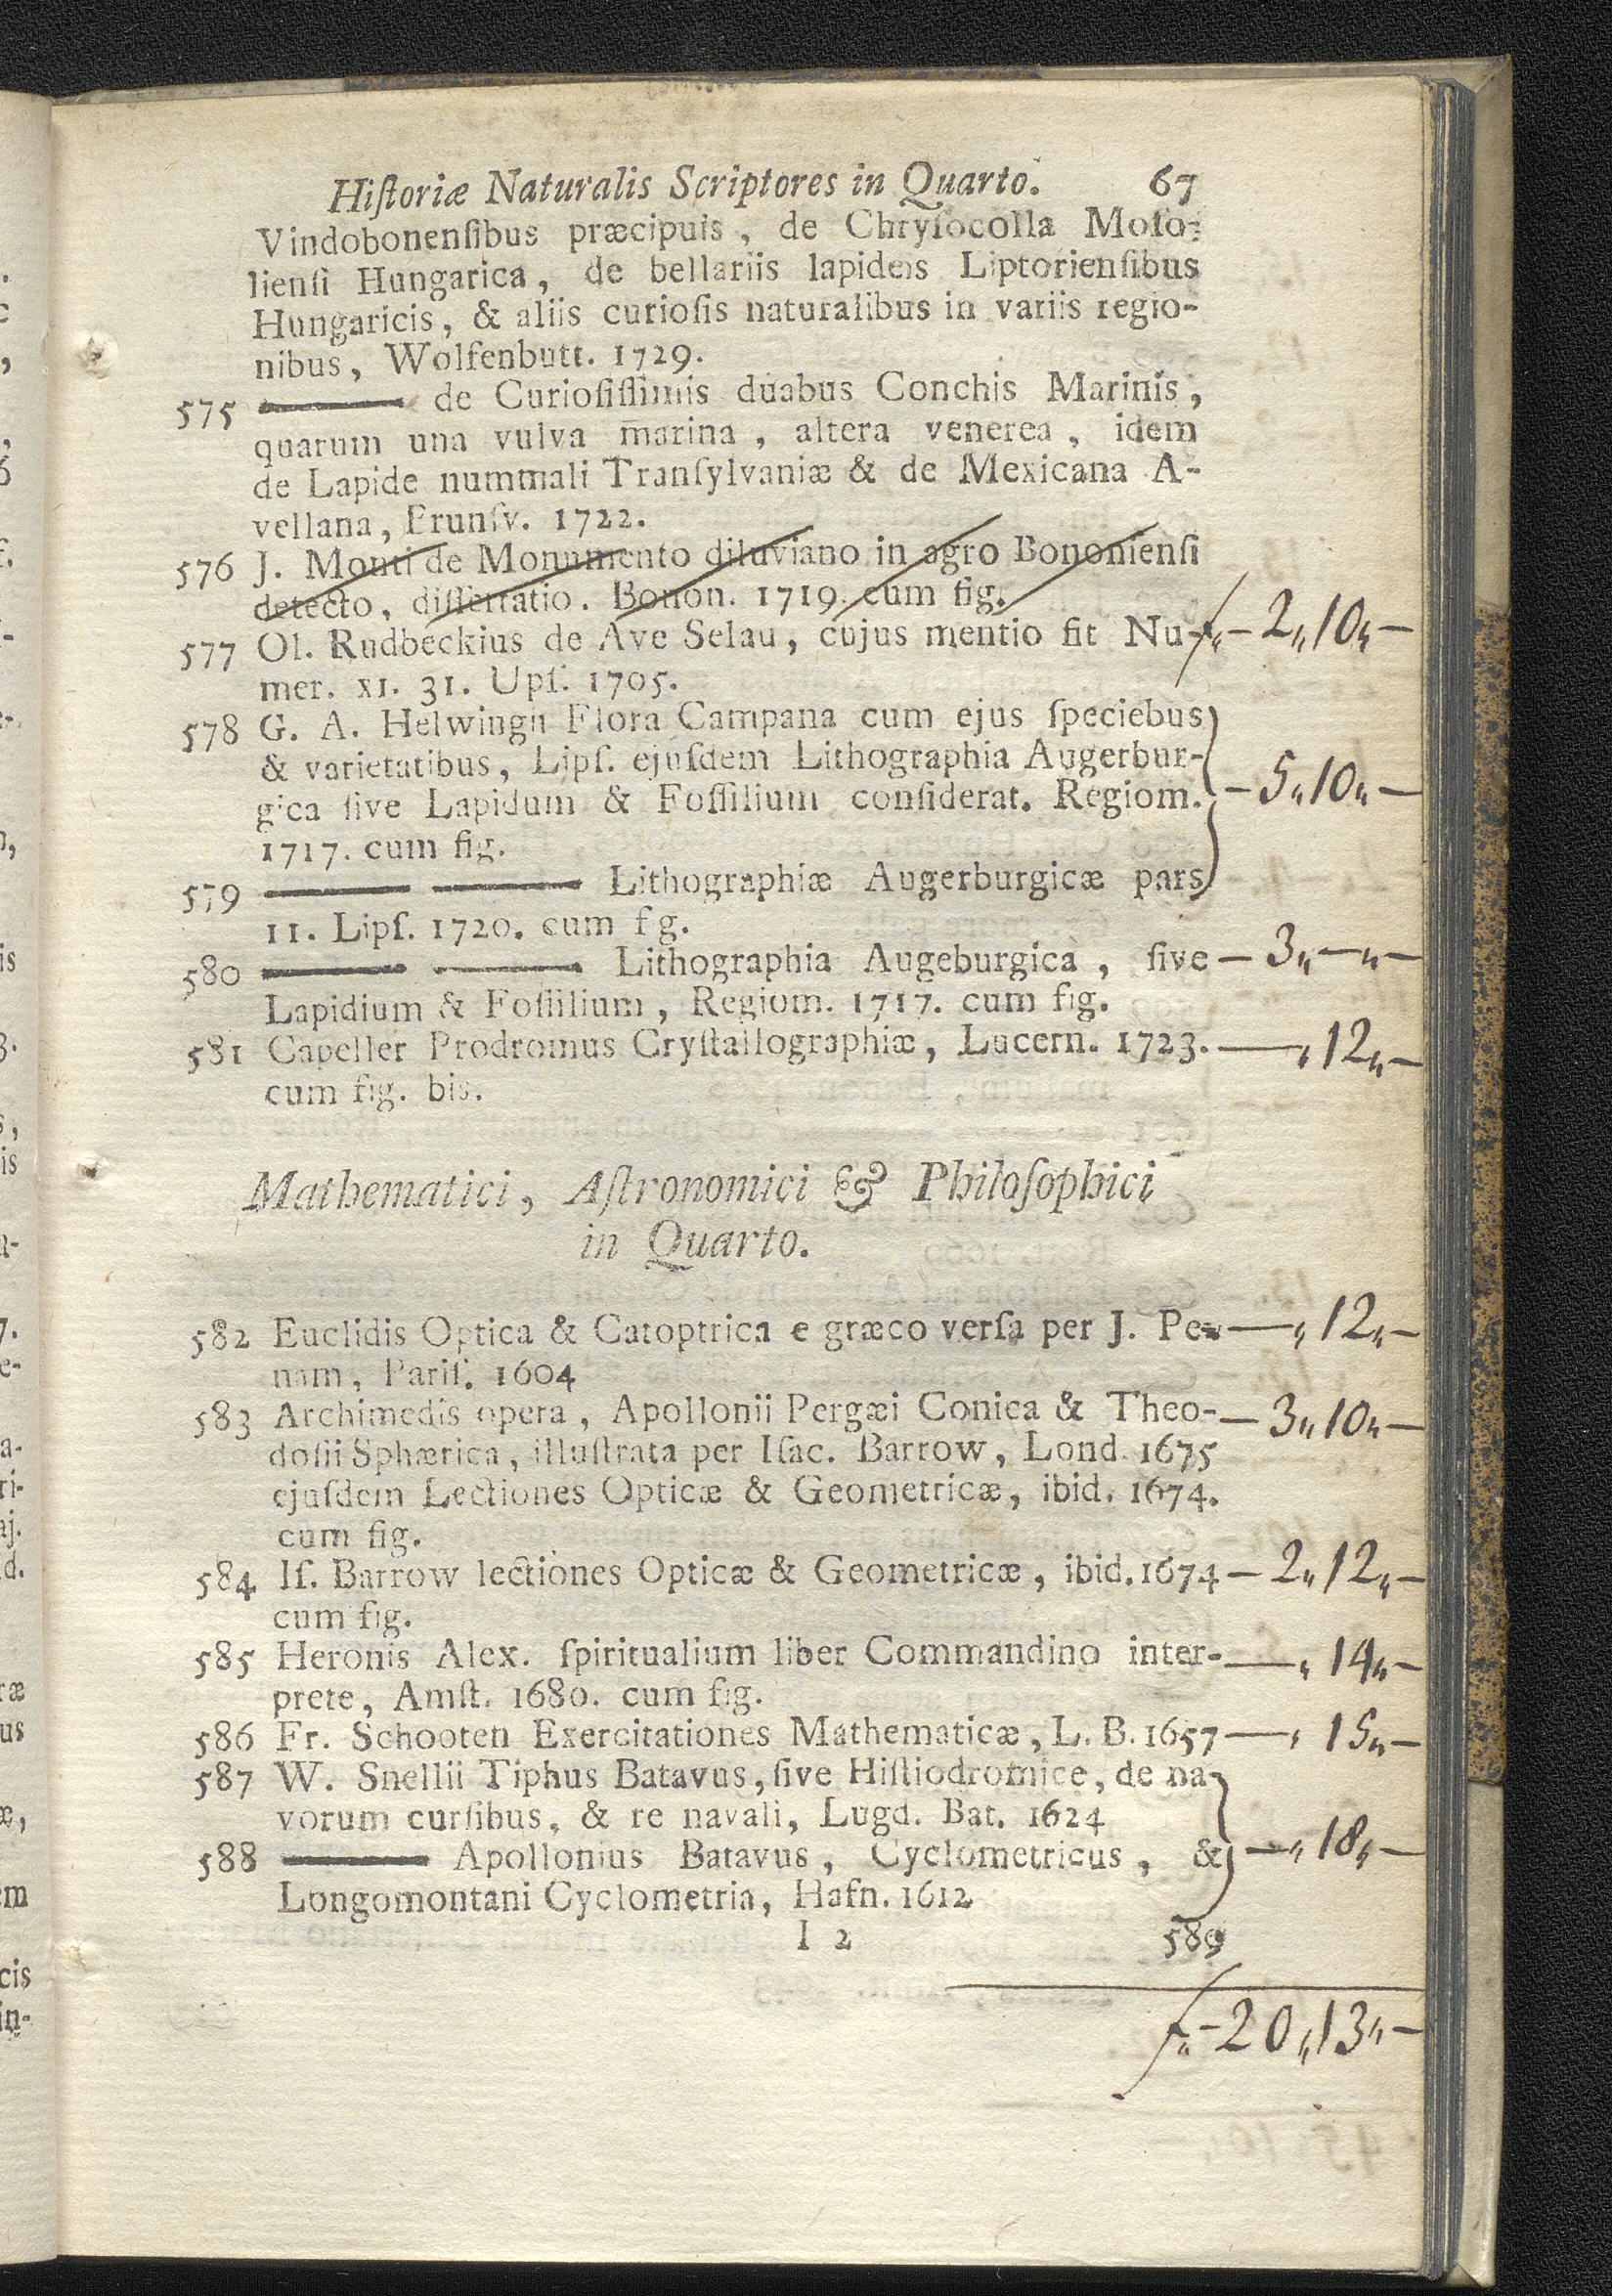 Hiſtoriæ Naturalis Scriptores in Quarto. 67
Vindobonenſibus præcipuis, de Chryſocolla Moſo-
lienſi Hungarica, de bellariis lapideis Liptorienſibus
Hungaricis, & aliis curioſis naturalibus in variis regio-
nibus, Wolfenbutt. 1729.
575 ——— de Curioſiſſimis duabus Conchis Marinis,
quarum una vulva marina, altera venerea, idem
de Lapide nummali Tranſylvaniæ & de Mexicana A-
vellana, Brunſv. 1722.
576 J. Monti de Monumento diluviano in agro Bononienſi
detecto, diſſertatio. Bonon. 1719. cum fig.
577 Ol. Rudbeckius de Ave Selau, cujus mentio fit Nu- f„ – 2„10„ –
mer. XI. 31. Upſ. 1705.
578 G. A. Helwingii Flora Campana cum ejus ſpeciebus
& varietatibus, Lipſ. ejuſdem Lithographia Augerbur-
gica ſive Lapidum & Foſſilium conſiderat. Regiom. – 5„10„ –
1717. cum fig.
579 ——— ——— Lithographiæ Augerburgicæ pars
II. Lipſ. 1720. cum fig.
580 ——— ——— Lithographia Augeburgica, ſive – 3„ – „ –
Lapidium & Foſſilium, Regiom. 1717. cum fig.
581 Capeller Prodromus Cryſtallographiæ, Lucern. 1723. — „12„ –
cum fig. bis.
Mathematici, Aſtronomici & Philoſophici
in Quarto.
582 Euclidis Optica & Catoptrica e græco verſa per J. Pe- — „12„ –
nam, Pariſ. 1604
583 Archimedis opera, Apollonii Pergæi Conica & Theo- – 3„10„ –
doſii Sphærica, illuſtrata per Iſac. Barrow, Lond. 1675
ejuſdem Lectiones Opticæ & Geometricæ, ibid. 1674.
cum fig.
584 Iſ. Barrow lectiones Opticæ & Geometricæ, ibid. 1674 – 2„12„ –
cum fig.
585 Heronis Alex. ſpiritualium liber Commandino inter- — „14„ –
prete, Amſt. 1680. cum fig.
586 Fr. Schooten Exercitationes Mathematicæ, L. B. 1657 — „15„ –
587 W. Snellii Tiphus Batavus, ſive Hiſtiodromice, de na-
vorum curſibus, & re navali, Lugd. Bat. 1624
588 ——— Apollonius Batavus, Cyclometricus, & — „18„ –
Longomontani Cyclometria, Hafn. 1612
I 2 589
f„ – 20„13„ –